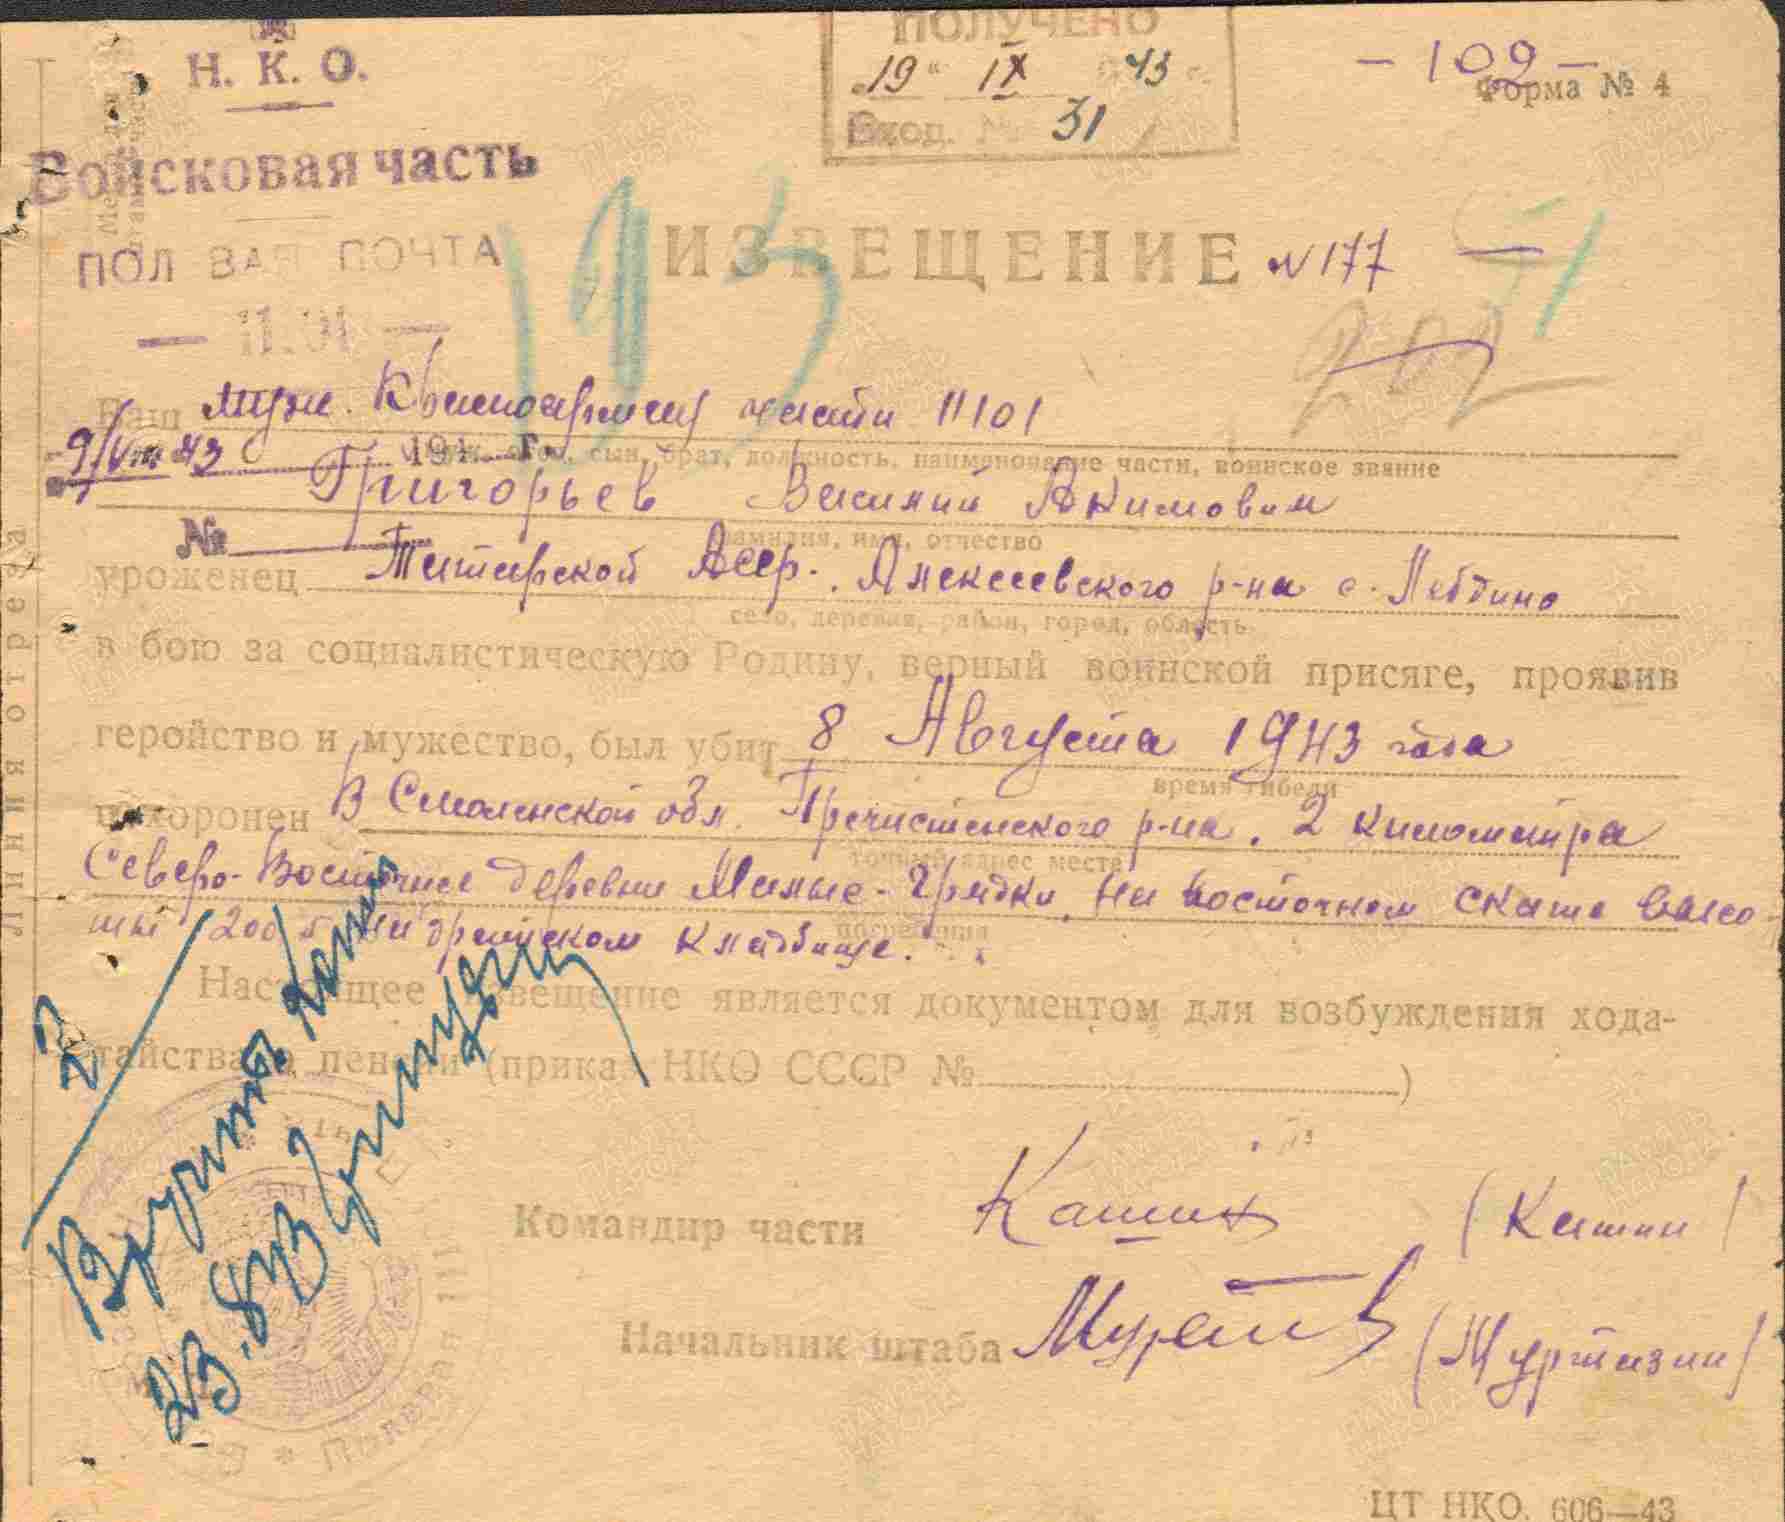 Н. К. О.
Войсковая часть
ПОЛЕВАЯ ПОЧТА
— 11101 —
ПОЛУЧЕНО
„19“ IX 43 г.
Вход. № 31
— 109 —
Форма № 4
193
ИЗВЕЩЕНИЕ № 177 —
202
Ваш муж. Красноармеец части 11101
9/VIII 43 194 г.
муж, отец, сын, брат, должность, наименование части, воинское звание
Григорьев Василий Акимович
№
фамилия, имя, отчество
уроженец Татарской Асср. Алексеевского р-на с. Лебдино
село, деревня, район, город, область
в бою за социалистическую Родину, верный воинской присяге, проявив
геройство и мужество, был убит 8 Августа 1943 года
время гибели
похоронен В Смоленской обл. Пречистенского р-на. 2 километра
точный адрес места
Северо-Восточнее деревни Малые-Грядки, на восточном скате высо-
погребения
ты 200,5 на братском кладбище.
Настоящее извещение является документом для возбуждения хода-
тайства о пенсии (приказ НКО СССР № )
Вручить
Командир части Кашин (Кашин)
Начальник штаба (Муртазин)
Линия отреза
ЦТ НКО. 606—43